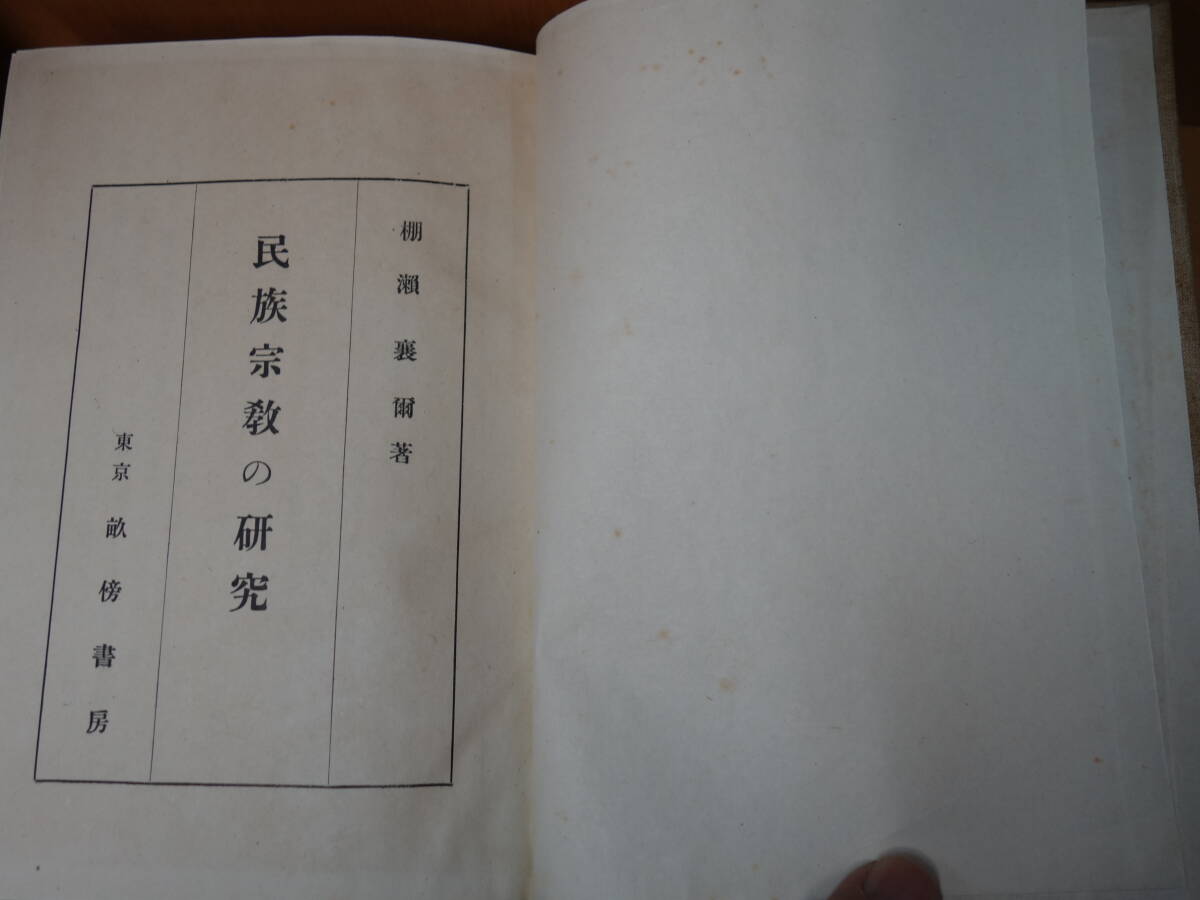 棚瀨襄爾著
民族宗教の研究
東京 畝傍書房